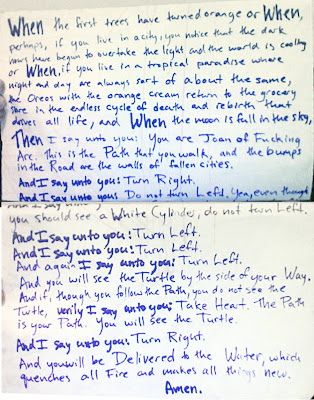 When the first trees have turned orange or When,
perhaps, if you live in a city, you notice that the dark
hours have begun to overtake the light and the world is cooling
or When, if you live in a tropical paradise where
night and day are always sort of about the same,
the Oreos with the orange cream return to the grocery
store in the endless cycle of death and rebirth that
drives all life, and When the moon is full in the sky,
Then I say unto you: You are Joan of Fucking
Arc. This is the Path that you walk, and the bumps
in the Road are the walls of fallen cities.
And I say unto you: Turn Right.
And I say unto you: Do not turn Left. Yea, even though
you should see a White Cylinder, do not turn Left.
And I say unto you: Turn Left.
And I say unto you: Turn Left.
And again I say unto you: Turn Left.
And you will see the Turtle by the side of your Way.
And if, though you follow the Path, you do not see the
Turtle, verily I say unto you: Take Heart. The Path
is your Path. You will see the Turtle.
And I say unto you: Turn Right.
And you will be Delivered to the Water, which
quenches all Fire and makes all things new.
Amen.